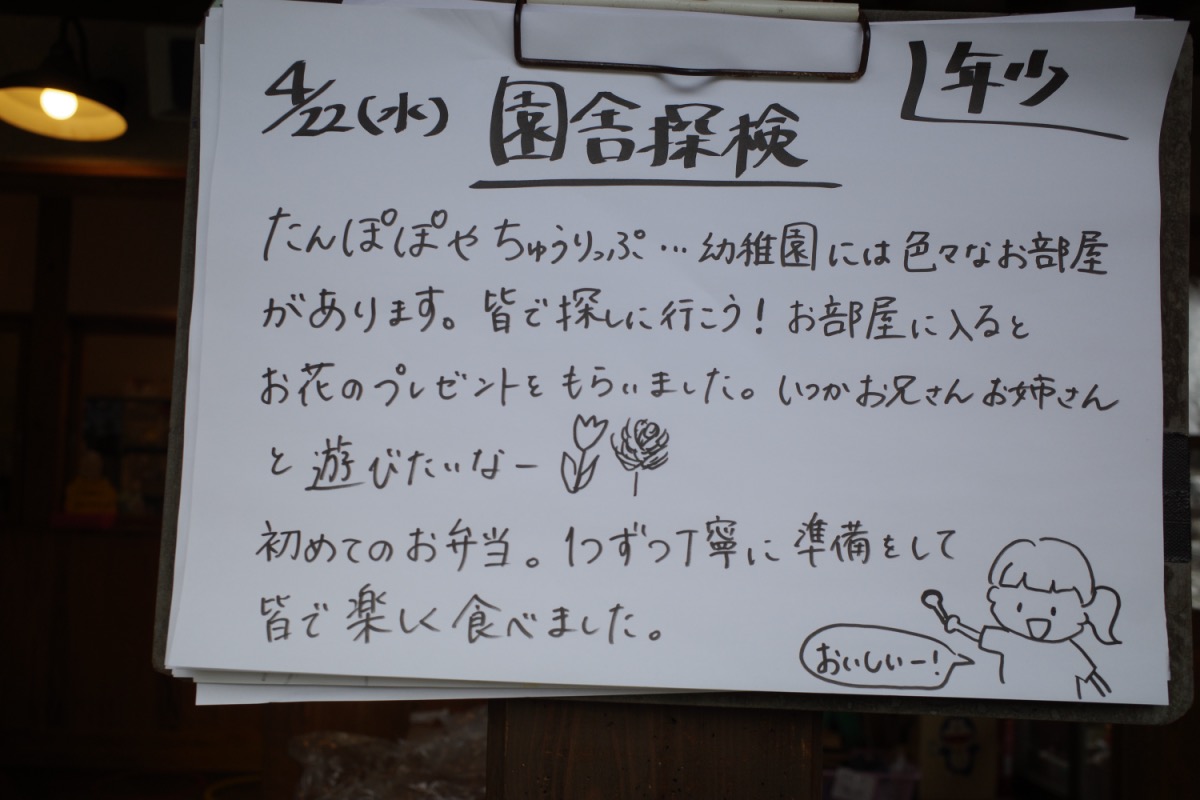 4/22(水) 園舎探検 年少
たんぽぽやちゅうりっぷ…幼稚園には色々なお部屋
があります。皆で探しに行こう！お部屋に入ると
お花のプレゼントをもらいました。いつかお兄さんお姉さん
と遊びたいなー
初めてのお弁当。1つずつ丁寧に準備をして
皆で楽しく食べました。
おいしいー！